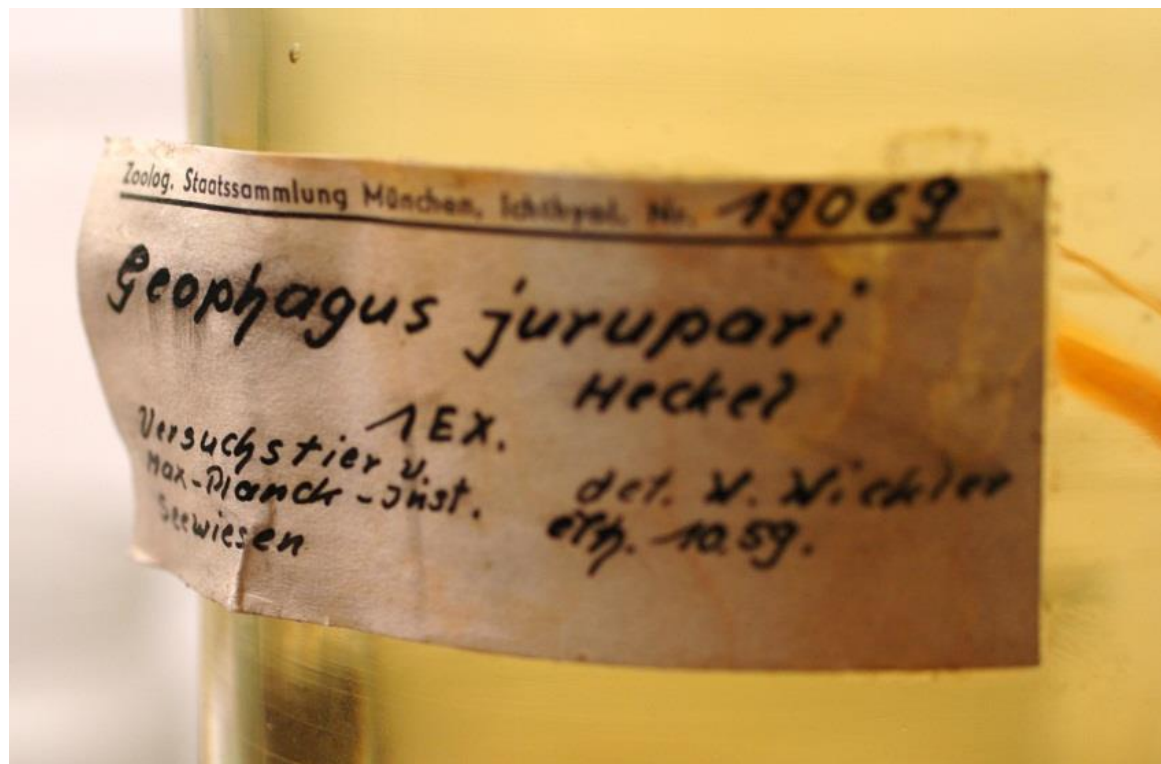 Zoolog. Staatssammlung München, Ichthyol. Nr. 19069
Geophagus jurupari
Heckel
1 EX.
Versuchstier v.
Max-Planck-Inst.
Seewiesen
det. W. Wickler
erh. 10.59.